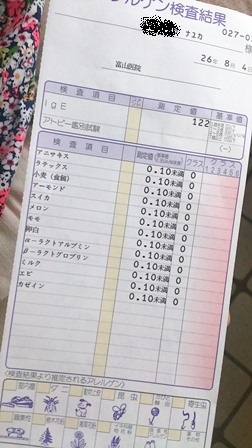 アレルゲン検査結果
ナユカ
様
26年 8月 4
富山医院
検査項目 測定値 基準値
IgE 122
アトピー鑑別試験 (-)
検査項目 測定値 クラス
クラス 1 2 3 4 5 6
アニサキス 0.10未満 0
ラテックス 0.10未満 0
小麦(食餌) 0.10未満 0
アーモンド 0.10未満 0
スイカ 0.10未満 0
メロン 0.10未満 0
モモ 0.10未満 0
卵白 0.10未満 0
α-ラクトアルブミン 0.10未満 0
β-ラクトグロブリン 0.10未満 0
ミルク 0.10未満 0
エビ 0.10未満 0
カゼイン
(検査結果より推定されるアレルゲン)
昆虫
寄生虫